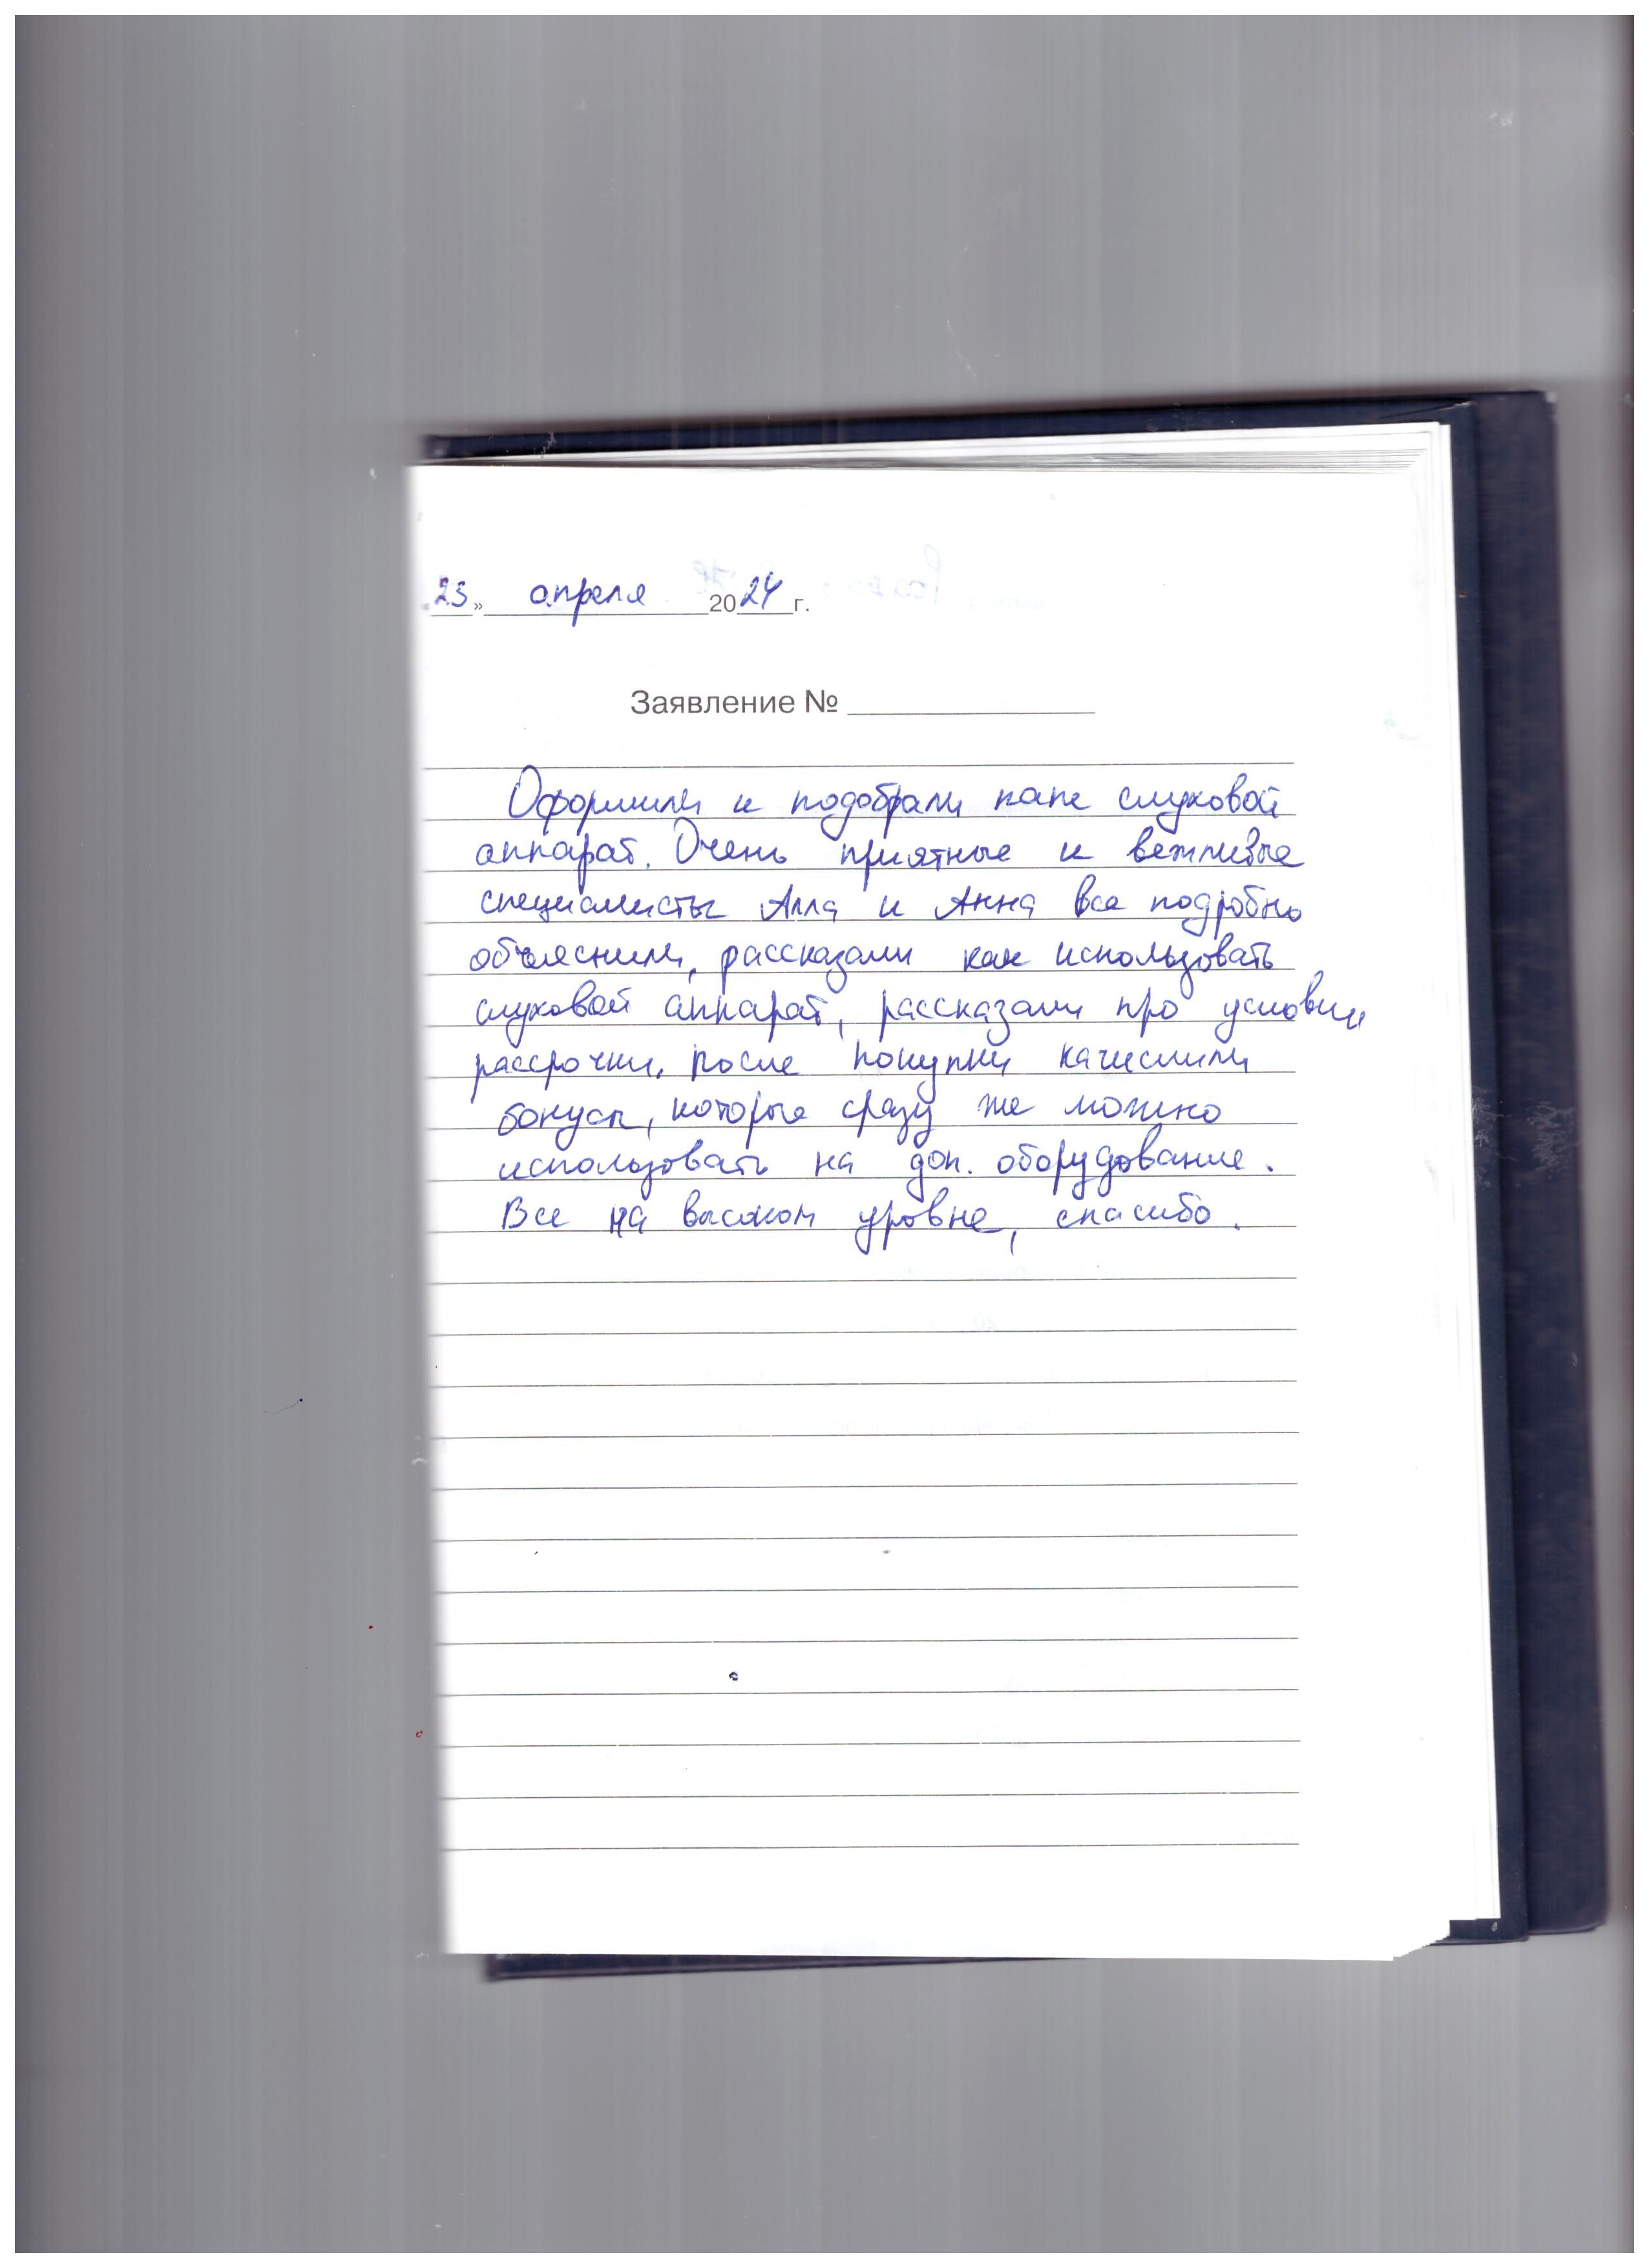 «23» апреля 2024 г.
Заявление №
Оформили и подобрали папе слуховой
аппарат. Очень приятные и вежливые
специалисты Алла и Анна все подробно
объяснили, рассказали как использовать
слуховой аппарат, рассказали про условия
рассрочки. после покупки начислили
бонусы, которые сразу же можно
использовать на доп. оборудование.
Все на высоком уровне, спасибо.